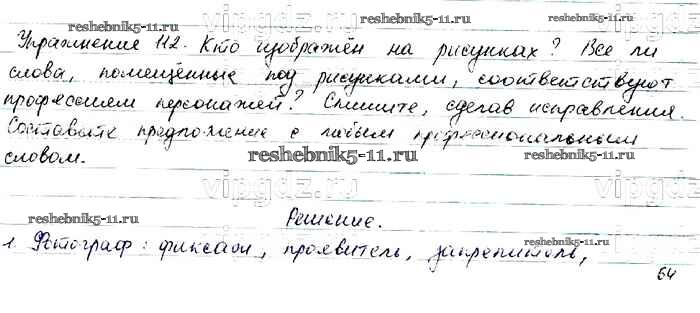 reshebnik5-11.ru
reshebnik5-11.ru
Упражнение 112. Кто изображён на рисунках? Все ли
слова, помещённые под рисунками, соответствуют
профессиям персонажей? Спишите, сделав исправления.
Составьте предложение с любым профессиональным
словом.
reshebnik5-11.ru
vipgdz.ru
vipgdz.ru
reshebnik5-11.ru
reshebnik5-11.ru
Решение.
1. Фотограф: фиксаж, проявитель, закрепитель,
64